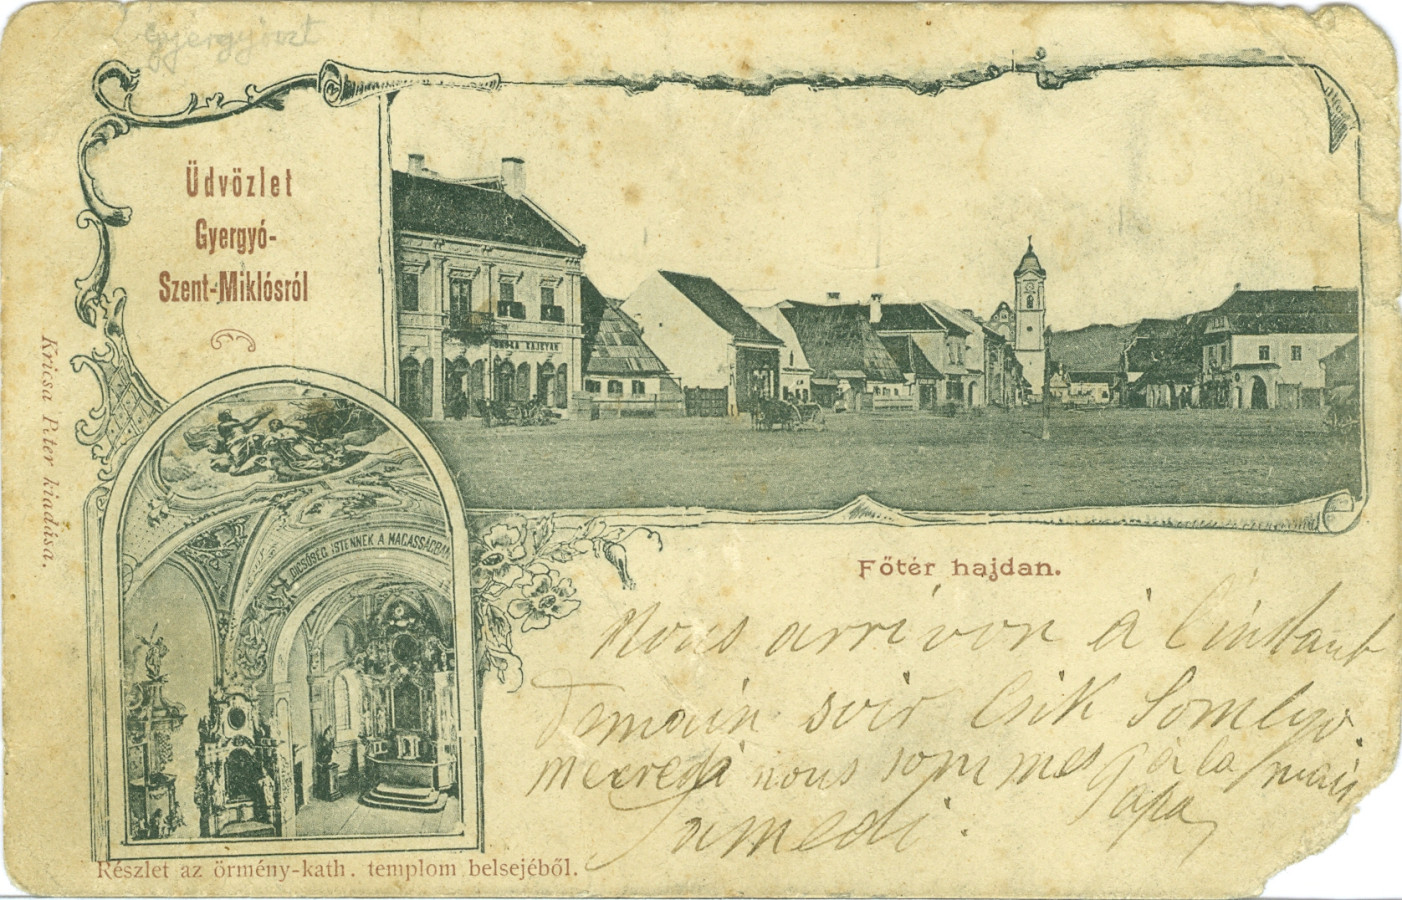 Üdvözlet
Gyergyó-
Szent-Miklósról
Kricsa Péter kiadása.
DICSŐSÉG ISTENNEK A MAGASSÁGBAN
Főtér hajdan.
Nous arrivon à l'instant
Demain soir Csik Somlyo.
mecredi nous sommes à la main
Papa
Samedi.
Részlet az örmény-kath. templom belsejéből.